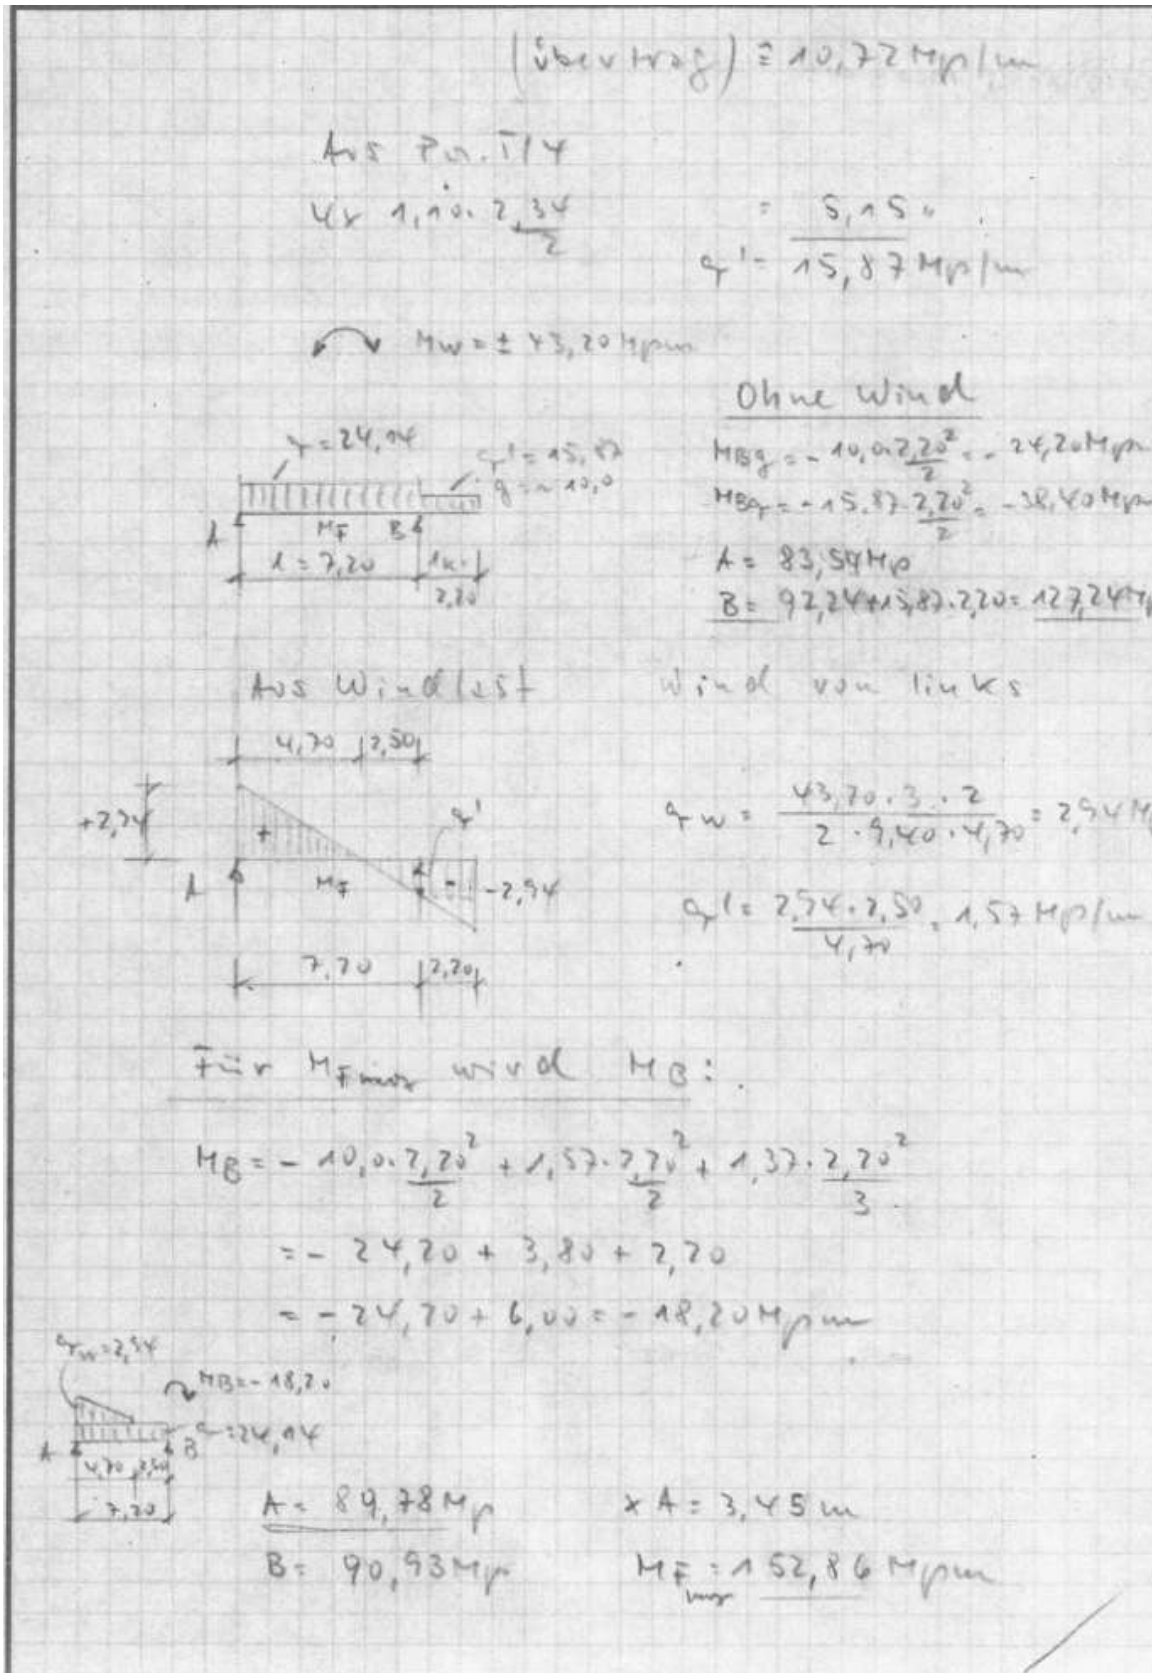 (Übertrag) ≙ 10,72 Mp/m
Aus Pos. I/4
4x 1,10 · 2,34/2 = 5,15 "
q' = 15,87 Mp/m
Mw = ± 43,20 Mpm
Ohne Wind
q = 24,14
q' = 15,87
g = ~10,0
A
MF
B
l = 7,20
lk =
2,20
MBg = - 10,0 · 2,20²/2 = - 24,20 Mpm
MBq = - 15,87 · 2,20²/2 = - 38,40 Mpm
A = 83,54 Mp
B = 92,24 + 15,87 · 2,20 = 127,24 Mp
Aus Windlast
Wind von links
4,70
2,50
+2,94
+
q'
-
-2,94
A
MF
7,20
2,20
qw = 43,20 · 3 · 2 / 2 · 9,40 · 4,70 = 2,94 M
q' = 2,94 · 2,50 / 4,70 = 1,57 Mp/m
Für MFmax wird MB:
MB = - 10,0 · 2,20²/2 + 1,57 · 2,20²/2 + 1,37 · 2,20²/3
= - 24,20 + 3,80 + 2,20
= - 24,20 + 6,00 = - 18,20 Mpm
qw = 2,94
MB = - 18,20
q = 24,14
A
B
4,70
2,50
7,20
A = 89,78 Mp
xA = 3,45 m
B = 90,93 Mp
MFmax = 152,86 Mpm